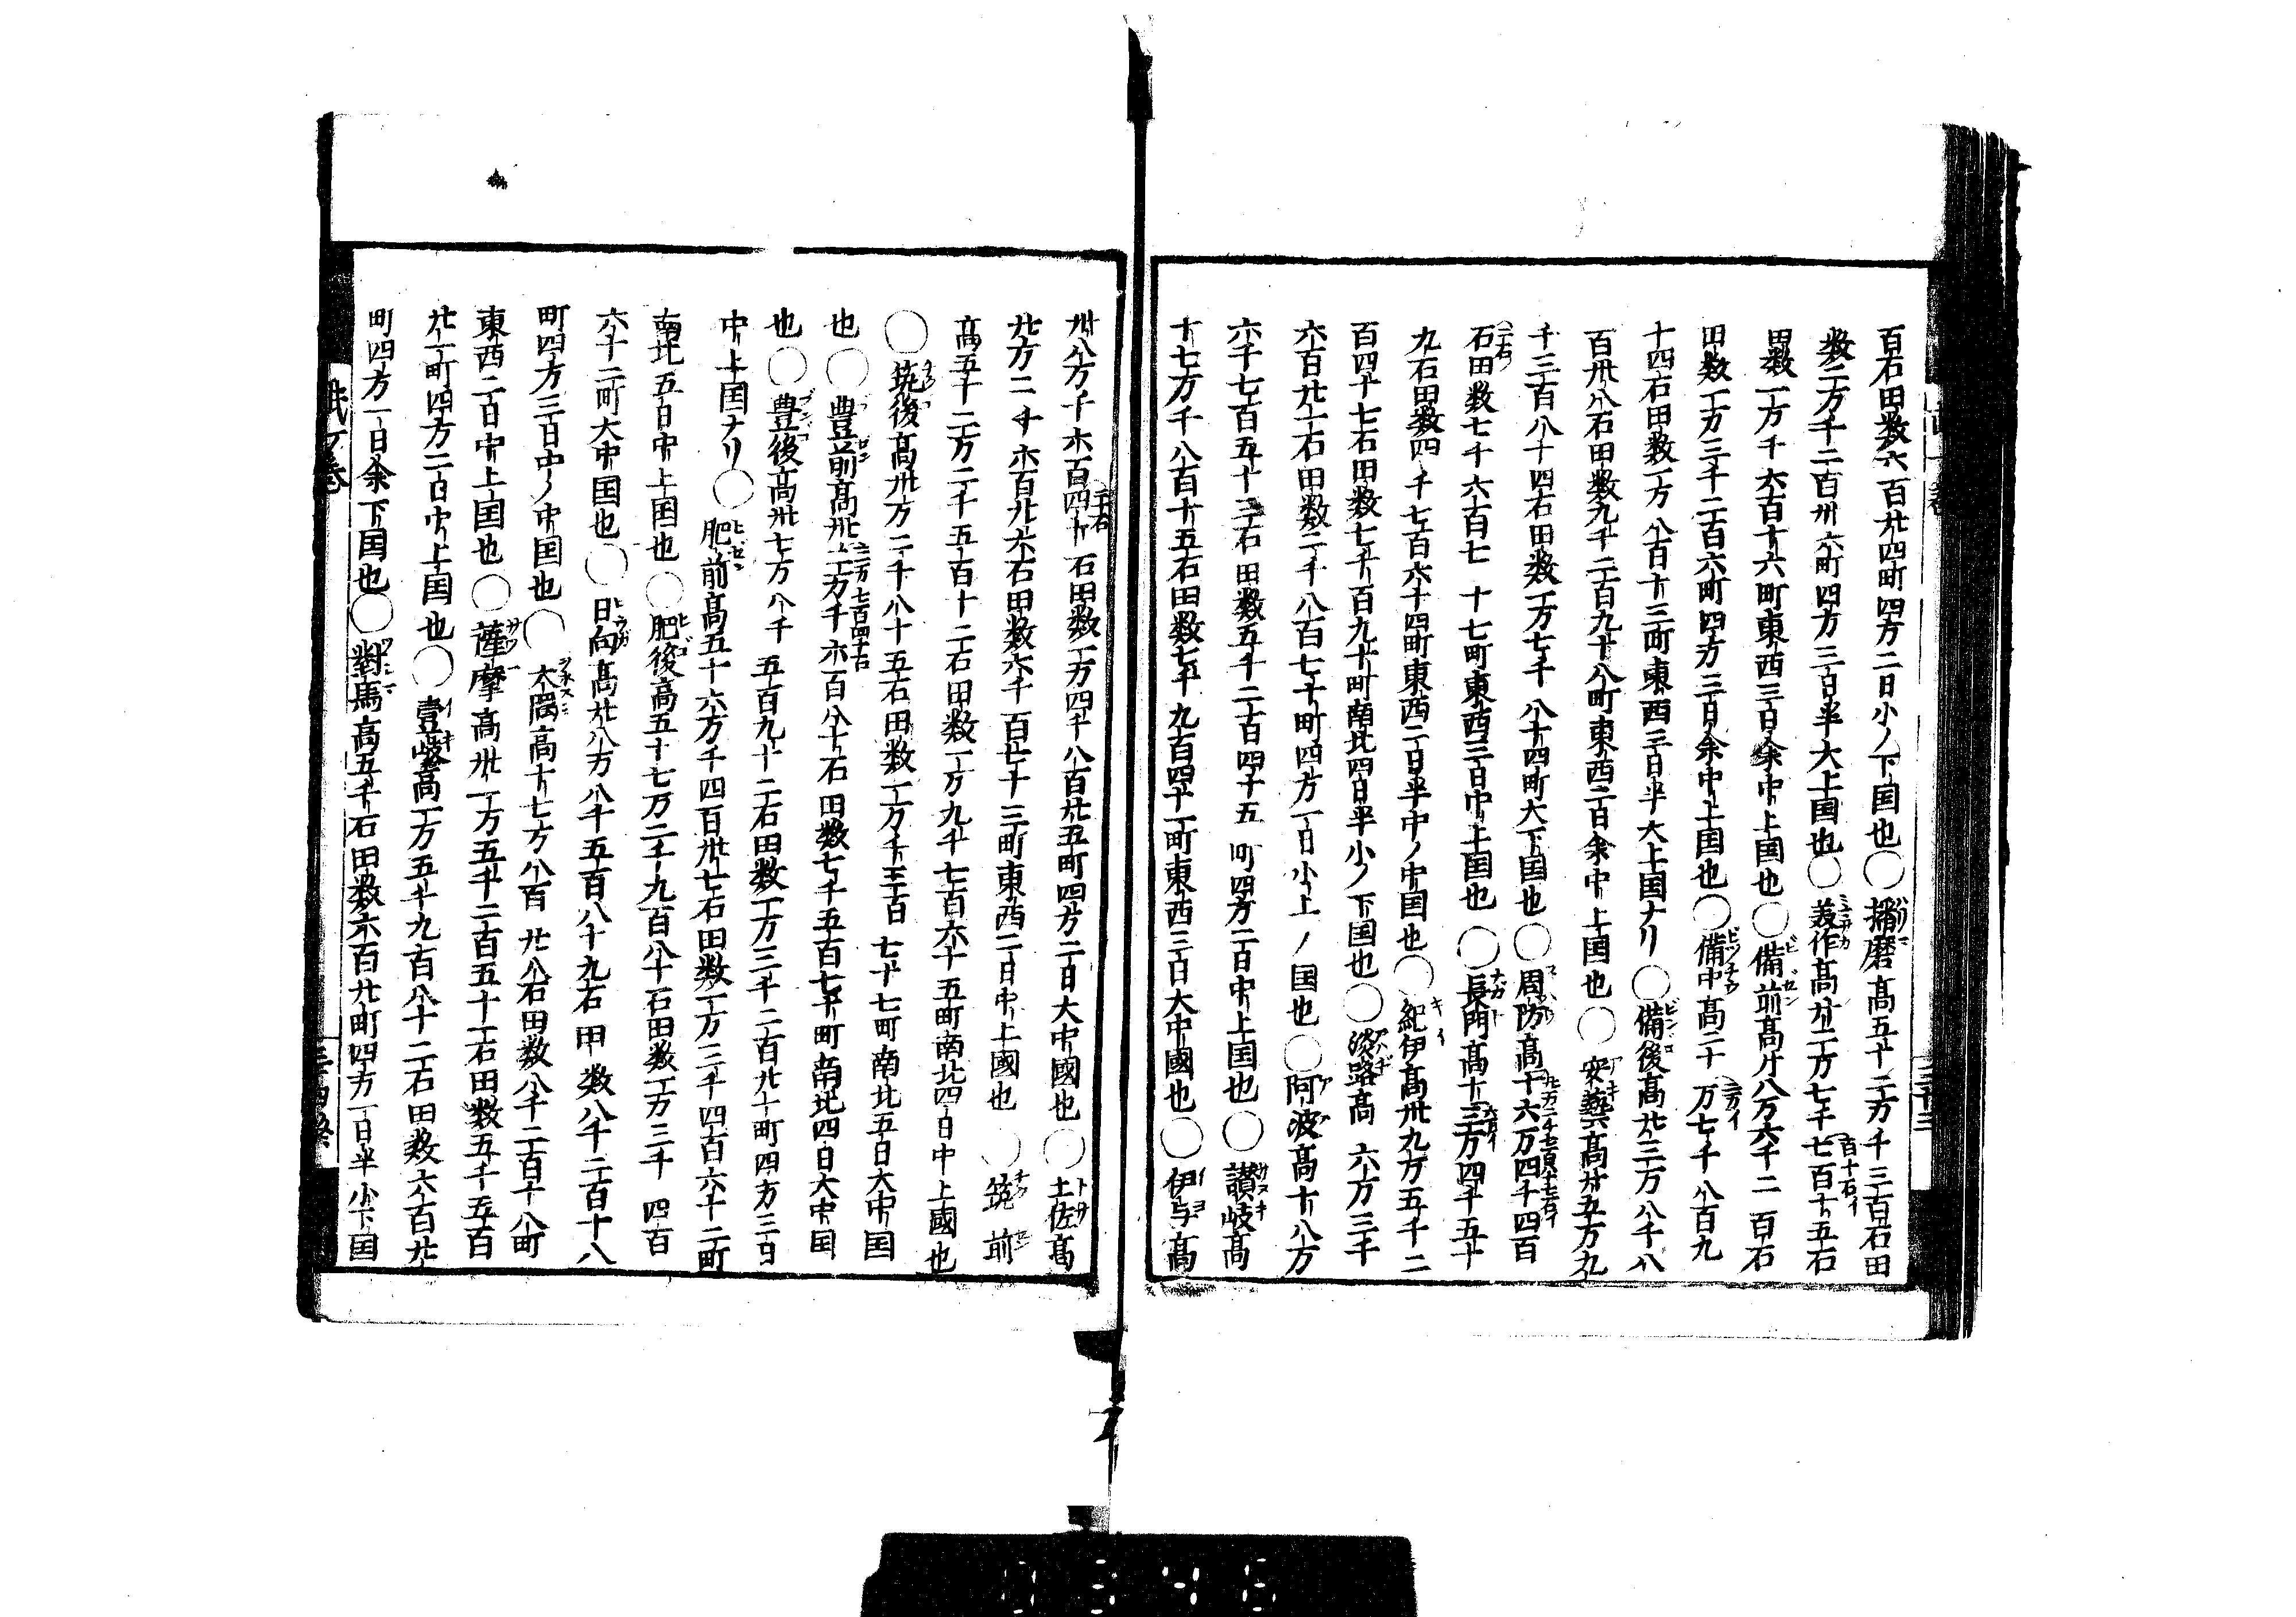 百石田数六百廿四町四方二日小ノ下国也〇播磨高五十二万千三百石田
数二万千二百卅六町四方三日半大上国也〇美作高廿二万七千七百十五石
田数一万千六百十六町東西三日余中上国也〇備前高廿八万六千二百石
田数一万三千二百六町四方三日余中上国也〇備中高二十万七千八百九
十四石田数一万八百十三町東西三日半大上国ナリ〇備後高廿三万八千八
百卅八石田数九千二百九十八町東西二日余中上国也〇安藝高廿五万九
千三百八十四石田数一万七千八十四町大下国也〇周防高十六万四千四百
石田数七千六百七十七町東西三日中上国也〇長門高十三万四千五十
九石田数四千七百六十四町東西二日半中ノ中国也〇紀伊高卅九万五千二
百四十七石田数七千百九十町南北四日半小ノ下国也〇淡路高六万三千
六百廿一石田数二千八百七十町四方一日小上ノ国也〇阿波高十八万
六千七百五十三石田数五千二百四十五町四方二日中上国也〇讃岐高
十七万千八百十五石田数七千九百四十一町東西三日大中國也〇伊与高
卅八万千六百四十石田数一万四千八百廿五町四方二日大中國也〇土佐高
廿万二千六百廿六石田数六千百七十三町東西二日中上國也〇筑前
高五十二万二千五百十二石田数一万九千七百六十五町南北四日中上國也
〇筑後高卅万二千八十五石田数一万千三百七十七町南北五日大中国
也〇豊前高卅三万千六百八十石田数七千五百七十町南北四日大中国
也〇豊後高卅七万八千五百九十二石田数一万三千二百廿一町四方三日
中上国ナリ〇肥前高五十六万千四百卅七石田数一万三千四百六十二町
南北五日中上国也〇肥後高五十七万二千九百八十石田数一万三千四百
六十二町大中国也〇日向高廿八万八千五百八十九石甲数八千二百十八
町四方三日中ノ中国也〇大隅高十七万八百廿八石田数八千二百十八町
東西二日中上国也〇薩摩高卅一万五千二百五十一石田数五千五百
廿一町四方二日中上国也〇壹岐高一万五千九百八十二石田数六百廿
町四方一日余下国也〇對馬高五千石田数六百廿町四方一日半小下国